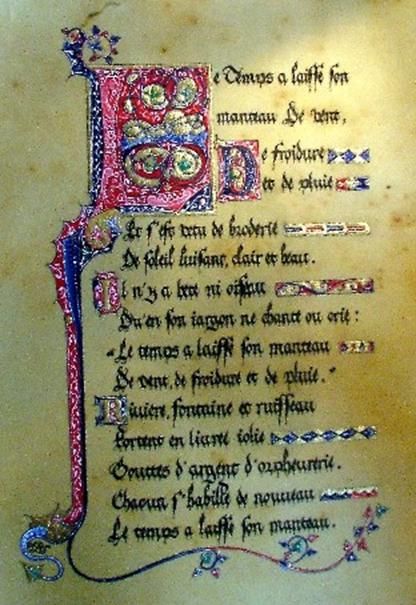 Le Temps a laissé son
manteau De vent,
De froidure
et de pluie
Et s'est vetu de broderie
De soleil luisant, clair et beau.
Il n'y a bete ni oiseau
Qu'en son jargon ne chante ou crie :
"Le temps a laissé son manteau
De vent, de froidure et de pluie."
Riviere, fontaine et ruisseau
Portent en livree jolie
Gouttes d'argent d'orpheurerie.
Chacun s'habille de nouveau
Le temps a laissé son manteau.